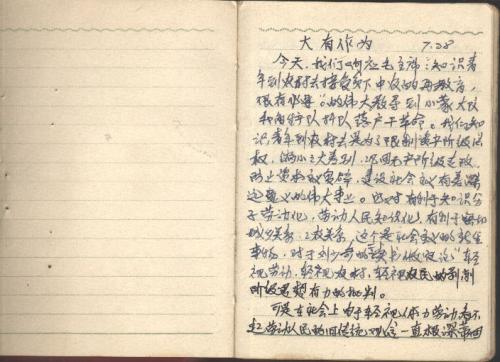 大有作为 7.28
今天,我们响应毛主席:"知识青
年到农村去接受贫下中农的再教育,
很有必要"的伟大教导到小蒙大队
和两行队 队落户干革命。我们知
识青年到农村去是为了限制资产阶级法
权,缩小三大差别,巩固无产阶级专政,
防止资本主义复辟,建设社会主义有着深
远意义的伟大事业。这对有利于知识分
子劳动化,劳动人民知识化,有利于密切
城乡关系,工农关系,这个是社会主义的新生
事物,对于刘少奇的"读书做官论""轻
视劳动,轻视农村,轻视农民的剥削
阶级思想有力的批判。
可是在社会上由于轻视体力劳动看不
起劳动人民的旧传统观念一直极深蒂固